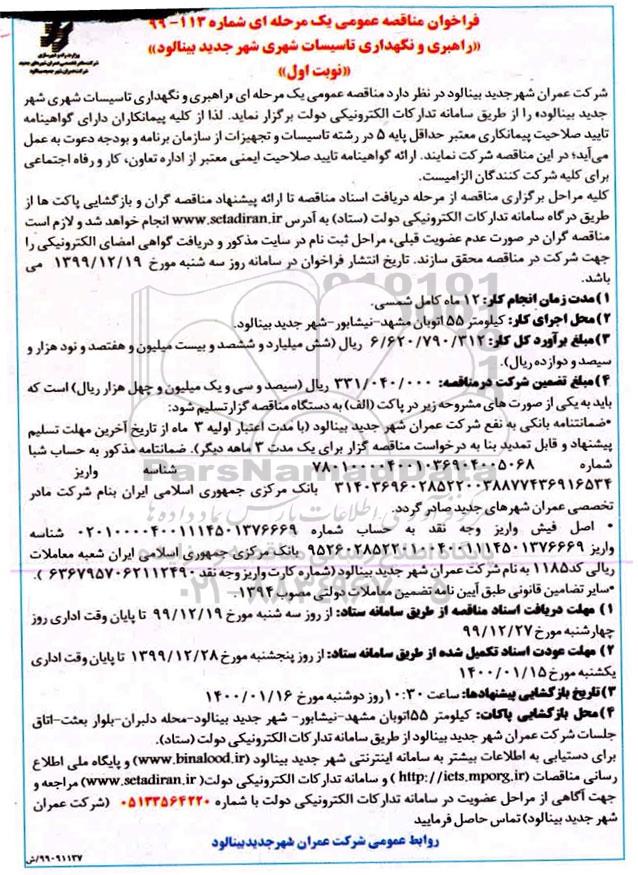 فراخوان مناقصه عمومی یک مرحله ای شماره ۱۱۳-۹۹
«راهبری و نگهداری تاسیسات شهری شهر جدید بینالود»
«نوبت اول»
شرکت عمران شهر جدید بینالود در نظر دارد مناقصه عمومی یک مرحله ای «راهبری و نگهداری تاسیسات شهری شهر
جدید بینالود» را از طریق سامانه تدارکات الکترونیکی دولت برگزار نماید. لذا از کلیه پیمانکاران دارای گواهینامه
تایید صلاحیت پیمانکاری معتبر حداقل پایه ۵ در رشته تاسیسات و تجهیزات از سازمان برنامه و بودجه دعوت به عمل
می‌آید؛ در این مناقصه شرکت نمایند. ارائه گواهینامه تایید صلاحیت ایمنی معتبر از اداره تعاون، کار و رفاه اجتماعی
برای کلیه شرکت کنندگان الزامیست.
کلیه مراحل برگزاری مناقصه از مرحله دریافت اسناد مناقصه تا ارائه پیشنهاد مناقصه گران و بازگشایی پاکت ها از
طریق درگاه سامانه تدارکات الکترونیکی دولت (ستاد) به آدرس www.setadiran.ir انجام خواهد شد و لازم است
مناقصه گران در صورت عدم عضویت قبلی، مراحل ثبت نام در سایت مذکور و دریافت گواهی امضای الکترونیکی را
جهت شرکت در مناقصه محقق سازند. تاریخ انتشار فراخوان در سامانه روز سه شنبه مورخ ۱۳۹۹/۱۲/۱۹ می
باشد.
۱) مدت زمان انجام کار: ۱۲ ماه کامل شمسی.
۲) محل اجرای کار: کیلومتر ۵۵ اتوبان مشهد-نیشابور-شهر جدید بینالود.
۳) مبلغ برآورد کل کار: ۶/۶۲۰/۷۹۰/۳۱۲ ریال (شش میلیارد و ششصد و بیست میلیون و هفتصد و نود هزار و
سیصد و دوازده ریال).
۴) مبلغ تضمین شرکت در مناقصه: ۳۳۱/۰۴۰/۰۰۰ ریال (سیصد و سی و یک میلیون و چهل هزار ریال) است که
باید به یکی از صورت های مشروحه زیر در پاکت (الف) به دستگاه مناقصه گزار تسلیم شود:
•ضمانتنامه بانکی به نفع شرکت عمران شهر جدید بینالود (با مدت اعتبار اولیه ۳ ماه از تاریخ آخرین مهلت تسلیم
پیشنهاد و قابل تمدید بنا به درخواست مناقصه گزار برای یک مدت ۳ ماهه دیگر). ضمانتنامه مذکور به حساب شبا
شماره ۷۸۰۱۰۰۰۰۴۰۰۱۰۳۶۹۰۴۰۰۵۰۶۸ شناسه واریز
۳۱۴۰۳۶۹۶۰۲۸۵۲۲۰۰۳۸۸۷۷۴۳۶۹۱۶۵۳۴ بانک مرکزی جمهوری اسلامی ایران بنام شرکت مادر
تخصصی عمران شهرهای جدید صادر گردد.
• اصل فیش واریز وجه نقد به حساب شماره ۰۲۰۱۰۰۰۰۴۰۰۱۱۱۴۵۰۱۳۷۶۶۶۹ شناسه
واریز ۹۵۲۶۰۲۸۵۲۲۰۱۰۰۴۰۰۱۱۱۴۵۰۱۳۷۶۶۶۹ بانک مرکزی جمهوری اسلامی ایران شعبه معاملات
ریالی کد ۱۱۸۵ به نام شرکت عمران شهر جدید بینالود (شماره کارت واریز وجه نقد ۶۳۶۷۹۵۷۰۶۲۱۱۲۴۹۰).
•سایر تضامین قانونی طبق آیین نامه تضمین معاملات دولتی مصوب ۱۳۹۴.
۱) مهلت دریافت اسناد مناقصه از طریق سامانه ستاد: از روز سه شنبه مورخ ۹۹/۱۲/۱۹ تا پایان وقت اداری روز
چهارشنبه مورخ ۹۹/۱۲/۲۷
۲) مهلت عودت اسناد تکمیل شده از طریق سامانه ستاد: از روز پنجشنبه مورخ ۱۳۹۹/۱۲/۲۸ تا پایان وقت اداری
یکشنبه مورخ ۱۴۰۰/۰۱/۱۵
۳) تاریخ بازگشایی پیشنهادها: ساعت ۱۰:۳۰ روز دوشنبه مورخ ۱۴۰۰/۰۱/۱۶
۴) محل بازگشایی پاکات: کیلومتر ۵۵ اتوبان مشهد-نیشابور- شهر جدید بینالود-محله دلبران-بلوار بعثت-اتاق
جلسات شرکت عمران شهر جدید بینالود از طریق سامانه تدارکات الکترونیکی دولت (ستاد).
برای دستیابی به اطلاعات بیشتر به سامانه اینترنتی شهر جدید بینالود (www.binalood.ir) و پایگاه ملی اطلاع
رسانی مناقصات (http://iets.mporg.ir) و سامانه تدارکات الکترونیکی دولت (www.setadiran.ir) مراجعه و
جهت آگاهی از مراحل عضویت در سامانه تدارکات الکترونیکی دولت با شماره ۰۵۱۳۳۵۶۴۲۲۰ (شرکت عمران
شهر جدید بینالود) تماس حاصل فرمایید
روابط عمومی شرکت عمران شهر جدید بینالود
۹۹۰۹۱۱۳۷/ش